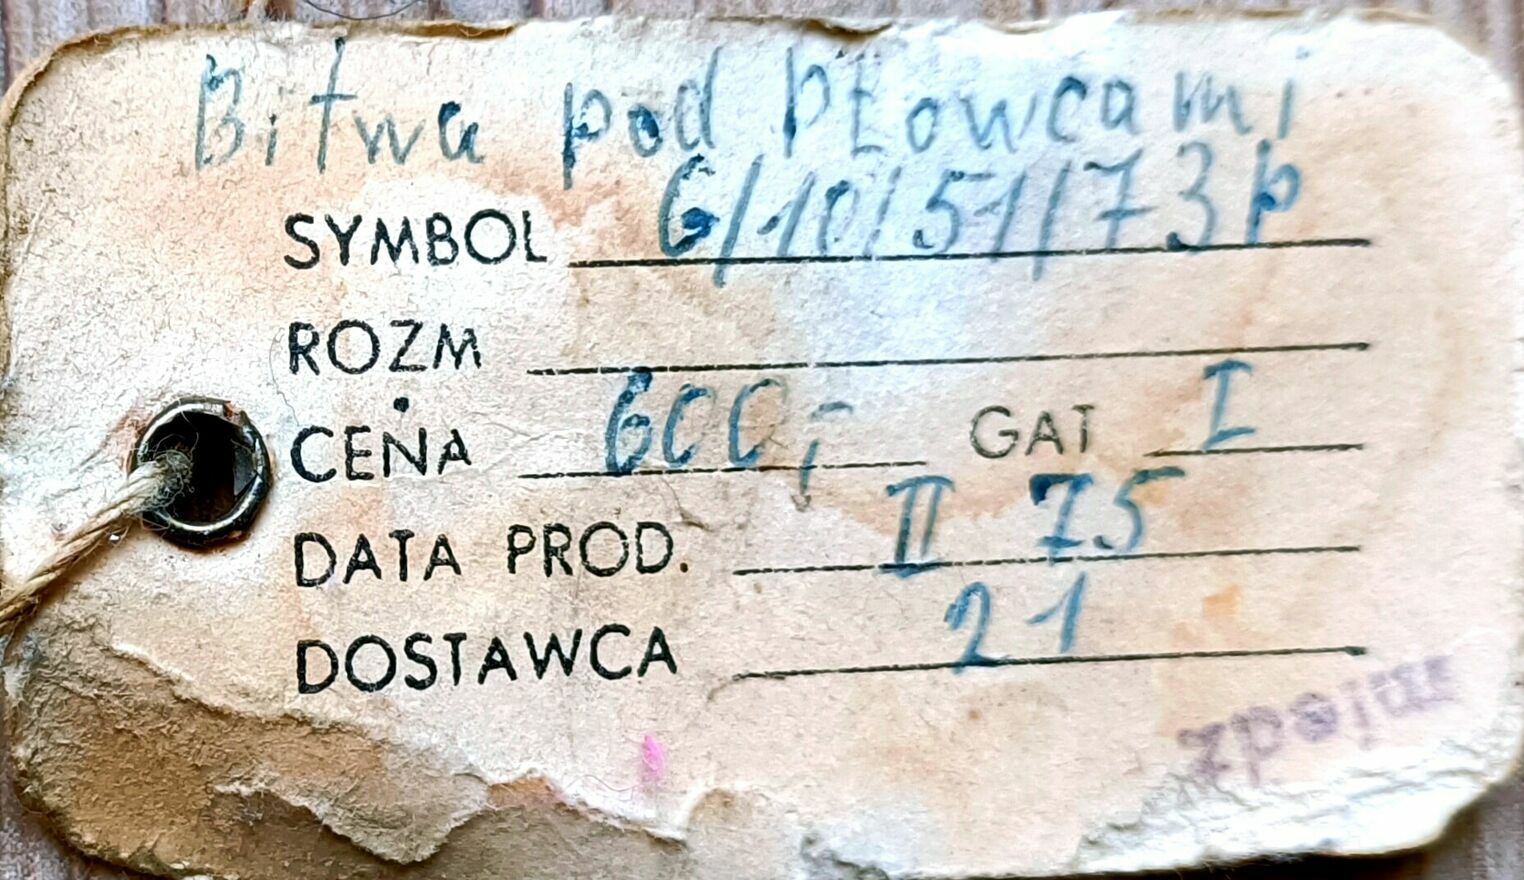 Bitwa pod Płowcami
SYMBOL G/10/51/73p
ROZM
CENA 600,- GAT I
DATA PROD. II 75
DOSTAWCA 21
miedź